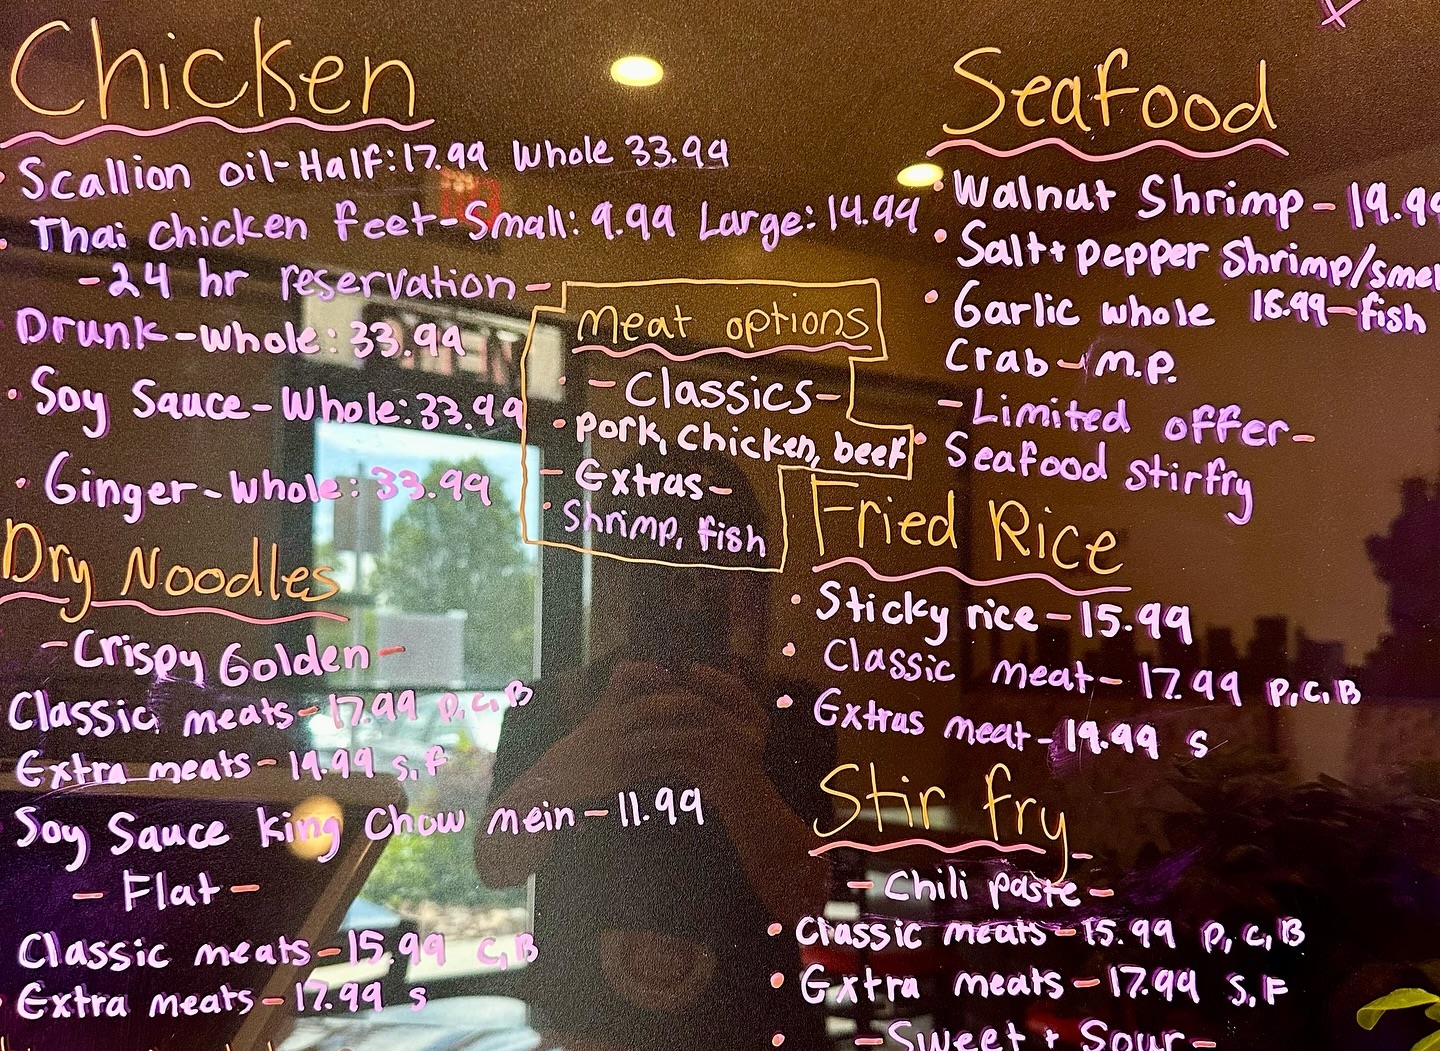 Chicken
Scallion oil-Half: 17.99 Whole 33.99
Thai chicken feet-Small: 9.99 Large: 14.99
-24 hr reservation-
Drunk-Whole: 33.99
Soy Sauce-Whole: 33.99
Ginger-Whole: 33.99
Meat options
-Classics-
Pork, Chicken, beef
-Extras-
Shrimp, fish
Seafood
Walnut Shrimp-19.99
Salt+pepper Shrimp/smel
Garlic whole 18.99-fish
Crab-M.P.
-Limited offer-
Seafood stirfry
Dry Noodles
-Crispy Golden-
Classic meats-17.99 P,C,B
Extra meats-19.99 S,F
Soy Sauce king Chow mein-11.99
-Flat-
Classic meats-15.99 C,B
Extra meats-17.99 S
Fried Rice
Sticky rice-15.99
Classic meat-17.99 P,C,B
Extras meat-19.99 S
Stir fry
-Chili paste-
Classic meats-15.99 P,C,B
Extra meats-17.99 S,F
-Sweet + Sour-